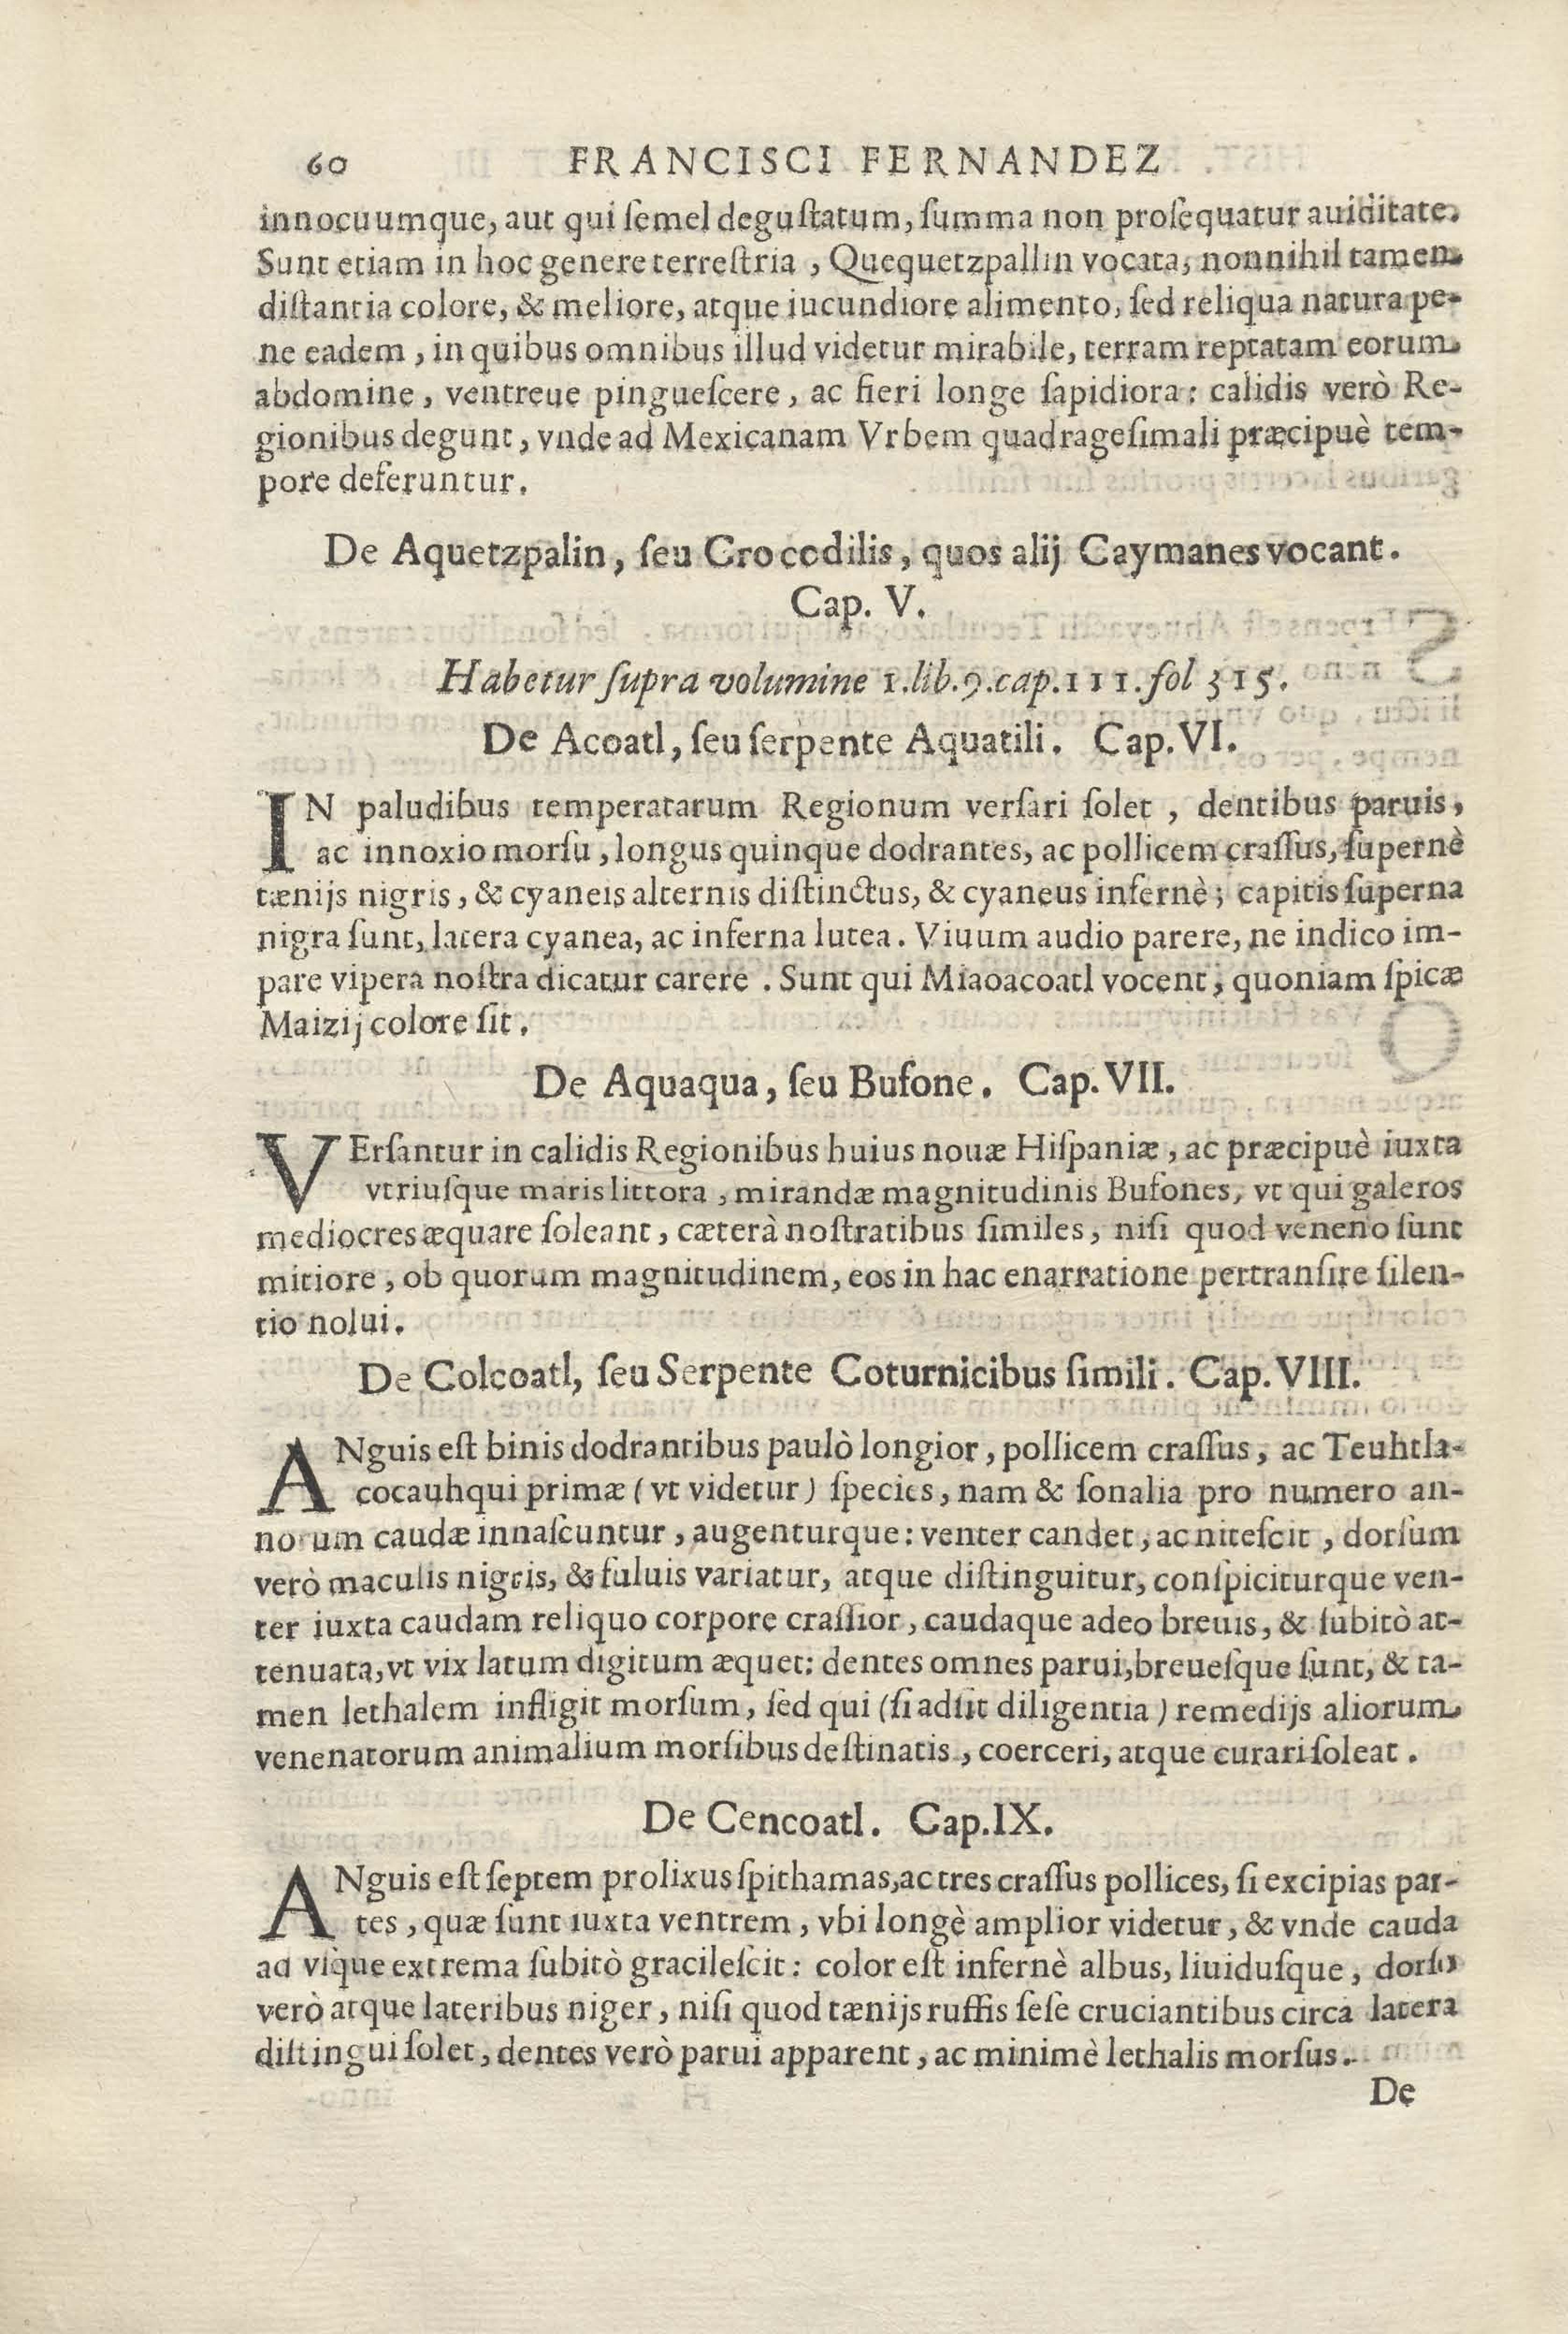 60 FRANCISCI FERNANDEZ
innocuumque, aut qui ſemel deguſtatum, ſumma non proſequatur auiditate.
Sunt etiam in hoc genere terreſtria, Quequetzpallin vocata, nonnihil tamen
diſtantia colore, & meliore, atque iucundiore alimento, ſed reliqua natura pe-
ne eadem, in quibus omnibus illud videtur mirabile, terram reptatam eorum
abdomine, ventreue pingueſcere, ac fieri longe ſapidiora: calidis verò Re-
gionibus degunt, vnde ad Mexicanam Vrbem quadrageſimali præcipuè tem-
pore deferuntur.
De Aquetzpalin, ſeu Crocodilis, quos alij Caymanes vocant.
Cap. V.
Habetur ſupra volumine 1.lib.9.cap.111.fol 315.
De Acoatl, ſeu ſerpente Aquatili. Cap. VI.
IN paludibus temperatarum Regionum verſari ſolet, dentibus paruis,
ac innoxio morſu, longus quinque dodrantes, ac pollicem craſſus, ſupernè
tænijs nigris, & cyaneis alternis diſtinctus, & cyaneus infernè; capitis ſuperna
nigra ſunt, latera cyanea, ac inferna lutea. Viuum audio parere, ne indico im-
pare vipera noſtra dicatur carere. Sunt qui Miaoacoatl vocent, quoniam ſpicæ
Maizij colore ſit.
De Aquaqua, ſeu Bufone. Cap. VII.
VErſantur in calidis Regionibus huius nouæ Hiſpaniæ, ac præcipuè iuxta
vtriuſque maris littora, mirandæ magnitudinis Bufones, vt qui galeros
mediocres æquare ſoleant, cæterà noſtratibus ſimiles, niſi quod veneno ſunt
mitiore, ob quorum magnitudinem, eos in hac enarratione pertranſire ſilen-
tio nolui.
De Colcoatl, ſeu Serpente Coturnicibus ſimili. Cap. VIII.
ANguis eſt binis dodrantibus paulò longior, pollicem craſſus, ac Teuhtla-
cocauhqui primæ (vt videtur) ſpecies, nam & ſonalia pro numero an-
norum caudæ innaſcuntur, augenturque: venter candet, ac niteſcit, dorſum
verò maculis nigris, & fuluis variatur, atque diſtinguitur, conſpiciturque ven-
ter iuxta caudam reliquo corpore craſſior, caudaque adeo breuis, & ſubitò at-
tenuata, vt vix latum digitum æquet: dentes omnes parui, breueſque ſunt, & ta-
men lethalem infligit morſum, ſed qui (ſi adſit diligentia) remedijs aliorum
venenatorum animalium morſibus deſtinatis, coerceri, atque curari ſoleat.
De Cencoatl. Cap. IX.
ANguis eſt ſeptem prolixus ſpithamas, ac tres craſſus pollices, ſi excipias par-
tes, quæ ſunt iuxta ventrem, vbi longè amplior videtur, & vnde cauda
ad vſque extrema ſubitò gracileſcit: color eſt infernè albus, liuiduſque, dorſo
verò atque lateribus niger, niſi quod tænijs ruffis ſeſe cruciantibus circa latera
diſtingui ſolet, dentes verò parui apparent, ac minimè lethalis morſus.
De